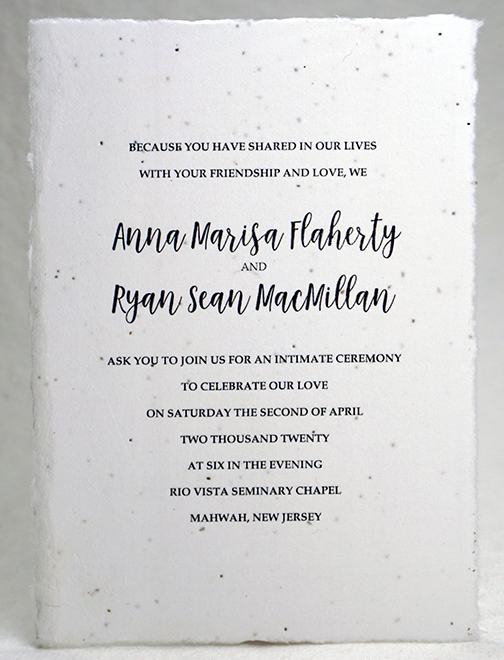 BECAUSE YOU HAVE SHARED IN OUR LIVES
WITH YOUR FRIENDSHIP AND LOVE, WE
Anna Marisa Flaherty
AND
Ryan Sean MacMillan
ASK YOU TO JOIN US FOR AN INTIMATE CEREMONY
TO CELEBRATE OUR LOVE
ON SATURDAY THE SECOND OF APRIL
TWO THOUSAND TWENTY
AT SIX IN THE EVENING
RIO VISTA SEMINARY CHAPEL
MAHWAH, NEW JERSEY